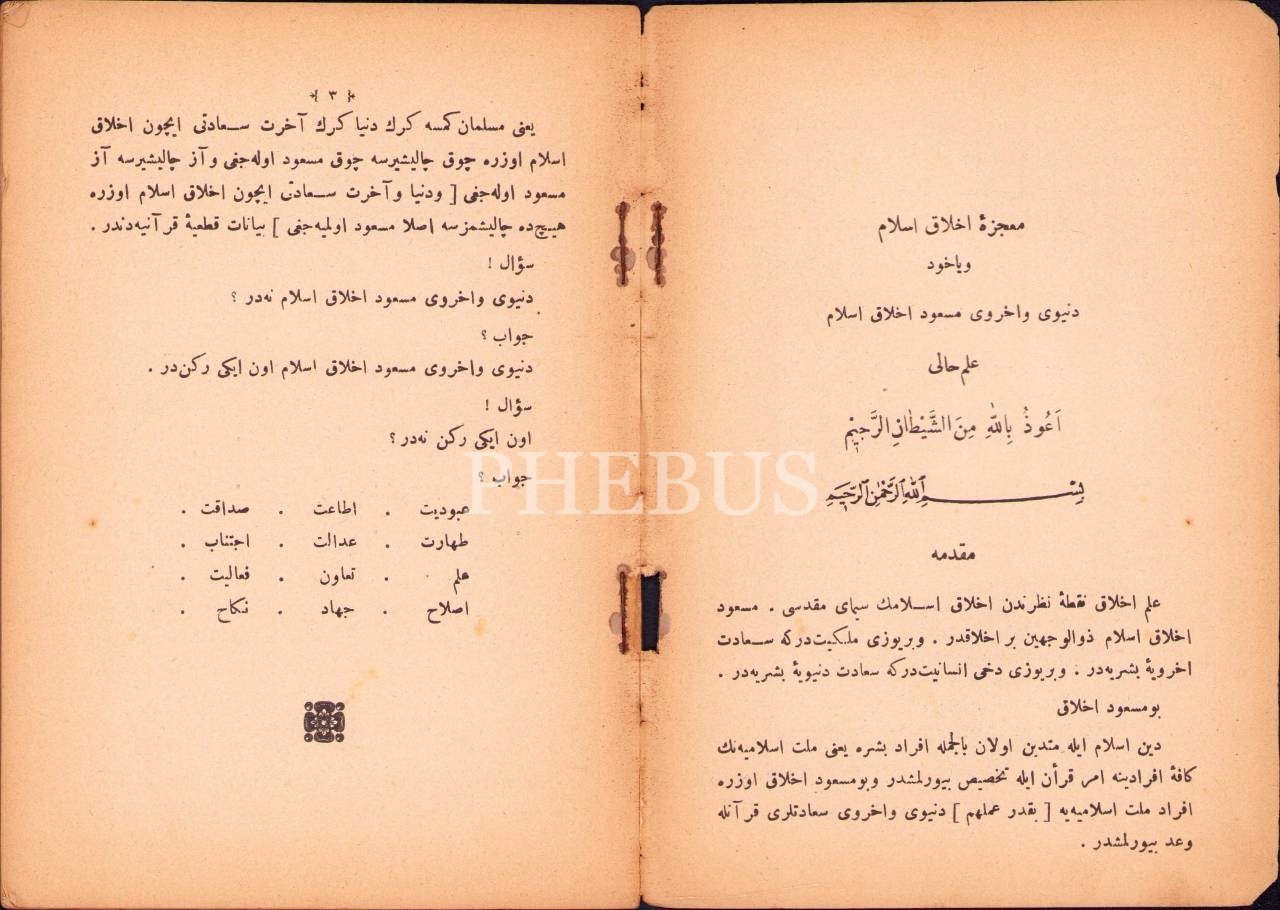 معجزهٔ اخلاق اسلام
وياخود
دنيوى واخروى مسعود اخلاق اسلام
علم حالى
اَعُوذُ بِاللّٰهِ مِنَ الشَّيْطَانِ الرَّجِيْمِ
بِسْمِ اللهِ الرَّحْمٰنِ الرَّحِيمِ
مقدمه
علم اخلاق نقطهٔ نظرندن اخلاق اسلامك سيماى مقدسى . مسعود
اخلاق اسلام ذوالوجهين بر اخلاقدر . وبريوزى ملكيت‌دركه سعادت
اخرويهٔ بشريه‌در . وبريوزى دخى انسانيت‌دركه سعادت دنيويهٔ بشريه‌در .
بومسعود اخلاق
دين اسلام ايله متدين اولان بالجمله افراد بشره يعنى ملت اسلاميه‌نك
كافهٔ افرادينه امر قرأن ايله تخصيص بيورلمشدر وبومسعود اخلاقى اوزره
افراد ملت اسلاميه‌يه [ بقدر عملهم ] دنيوى واخروى سعادتلرى قرآنله
وعد بيورلمشدر .
﴿ ٣ ﴾
يعنى مسلمان كمسه كرك دنيا كرك آخرت سعادتى ايچون اخلاق
اسلام اوزره چوق چاليشيرسه چوق مسعود اوله‌جغى وآز چاليشيرسه آز
مسعود اوله‌جغى [ ودنيا وآخرت سعادتى ايچون اخلاق اسلام اوزره
هيچ‌ده چاليشمزسه اصلا مسعود اولميه‌جغى ] بيانات قطعيهٔ قرآنيه‌دندر .
سؤال !
دنيوى واخروى مسعود اخلاق اسلام نه‌در ؟
جواب ؟
دنيوى واخروى مسعود اخلاق اسلام اون ايكى ركن‌در .
سؤال !
اون ايكى ركن نه‌در ؟
جواب ؟
عبوديت . اطاعت . صداقت .
طهارت . عدالت . اجتناب .
علم . تعاون . فعاليت .
اصلاح . جهاد . نكاح .
PHEBUS